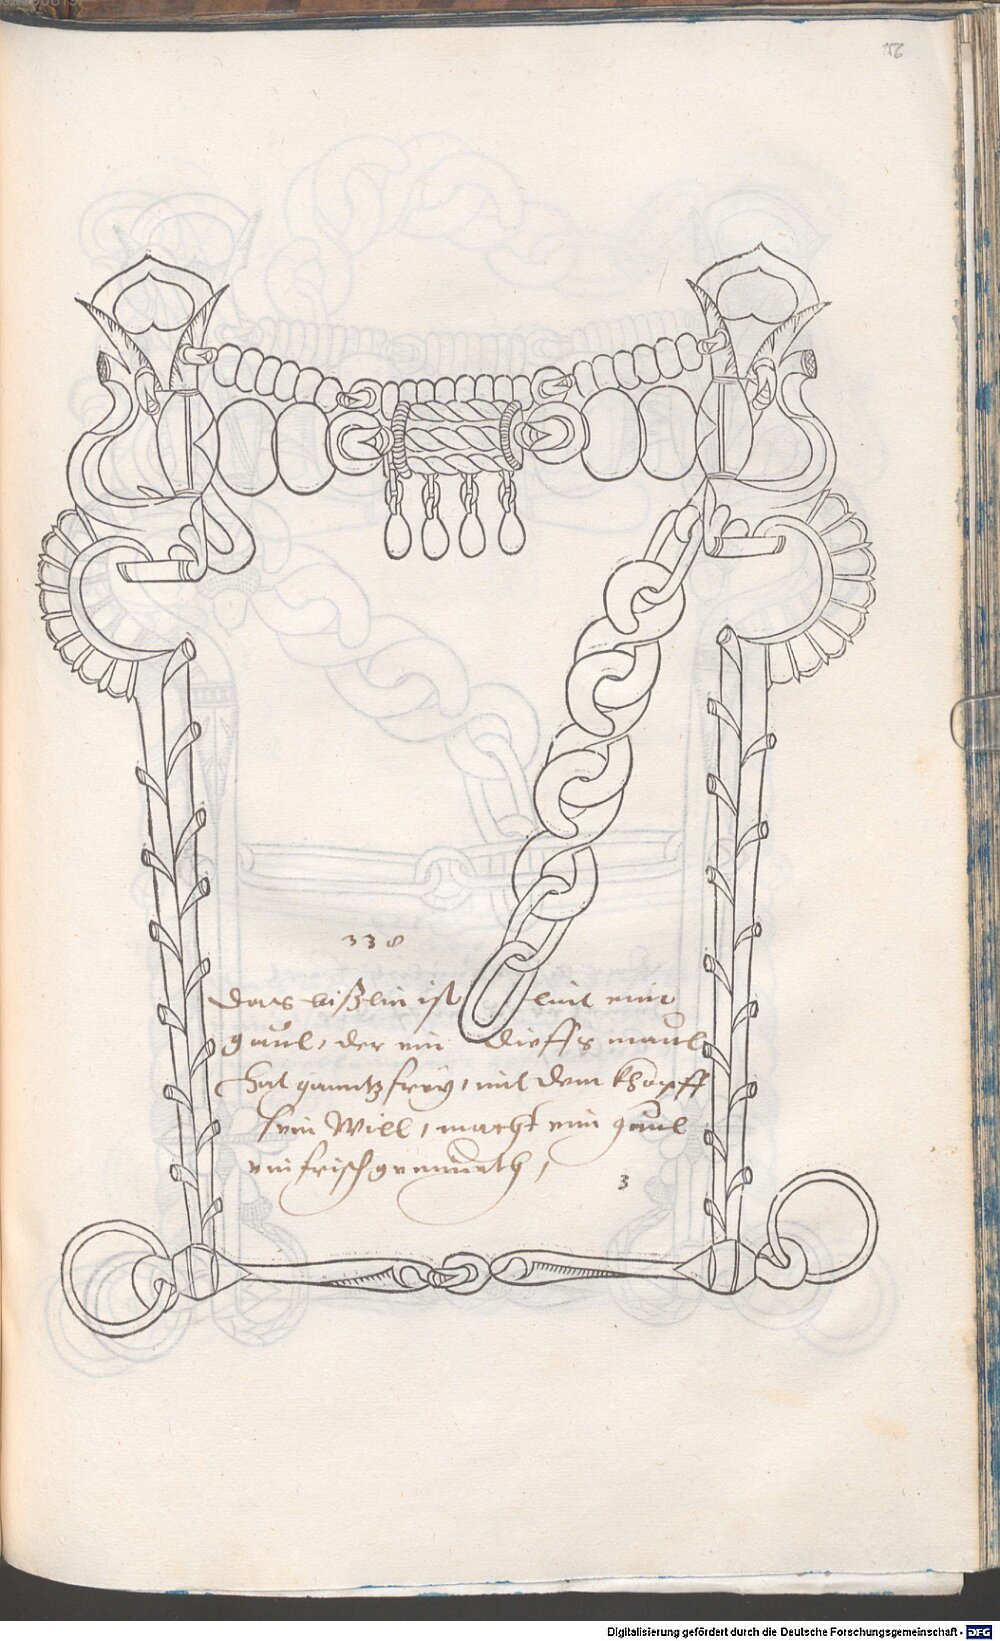 156
330
Das bißlin ist lint eim
gaul, der ein dieffs maul
hat ganntz frey, mit dem khopff
sein Will, macht ein gaul
ein frisch gemüeth,
3
Digitalisierung gefördert durch die Deutsche Forschungsgemeinschaft - DFG